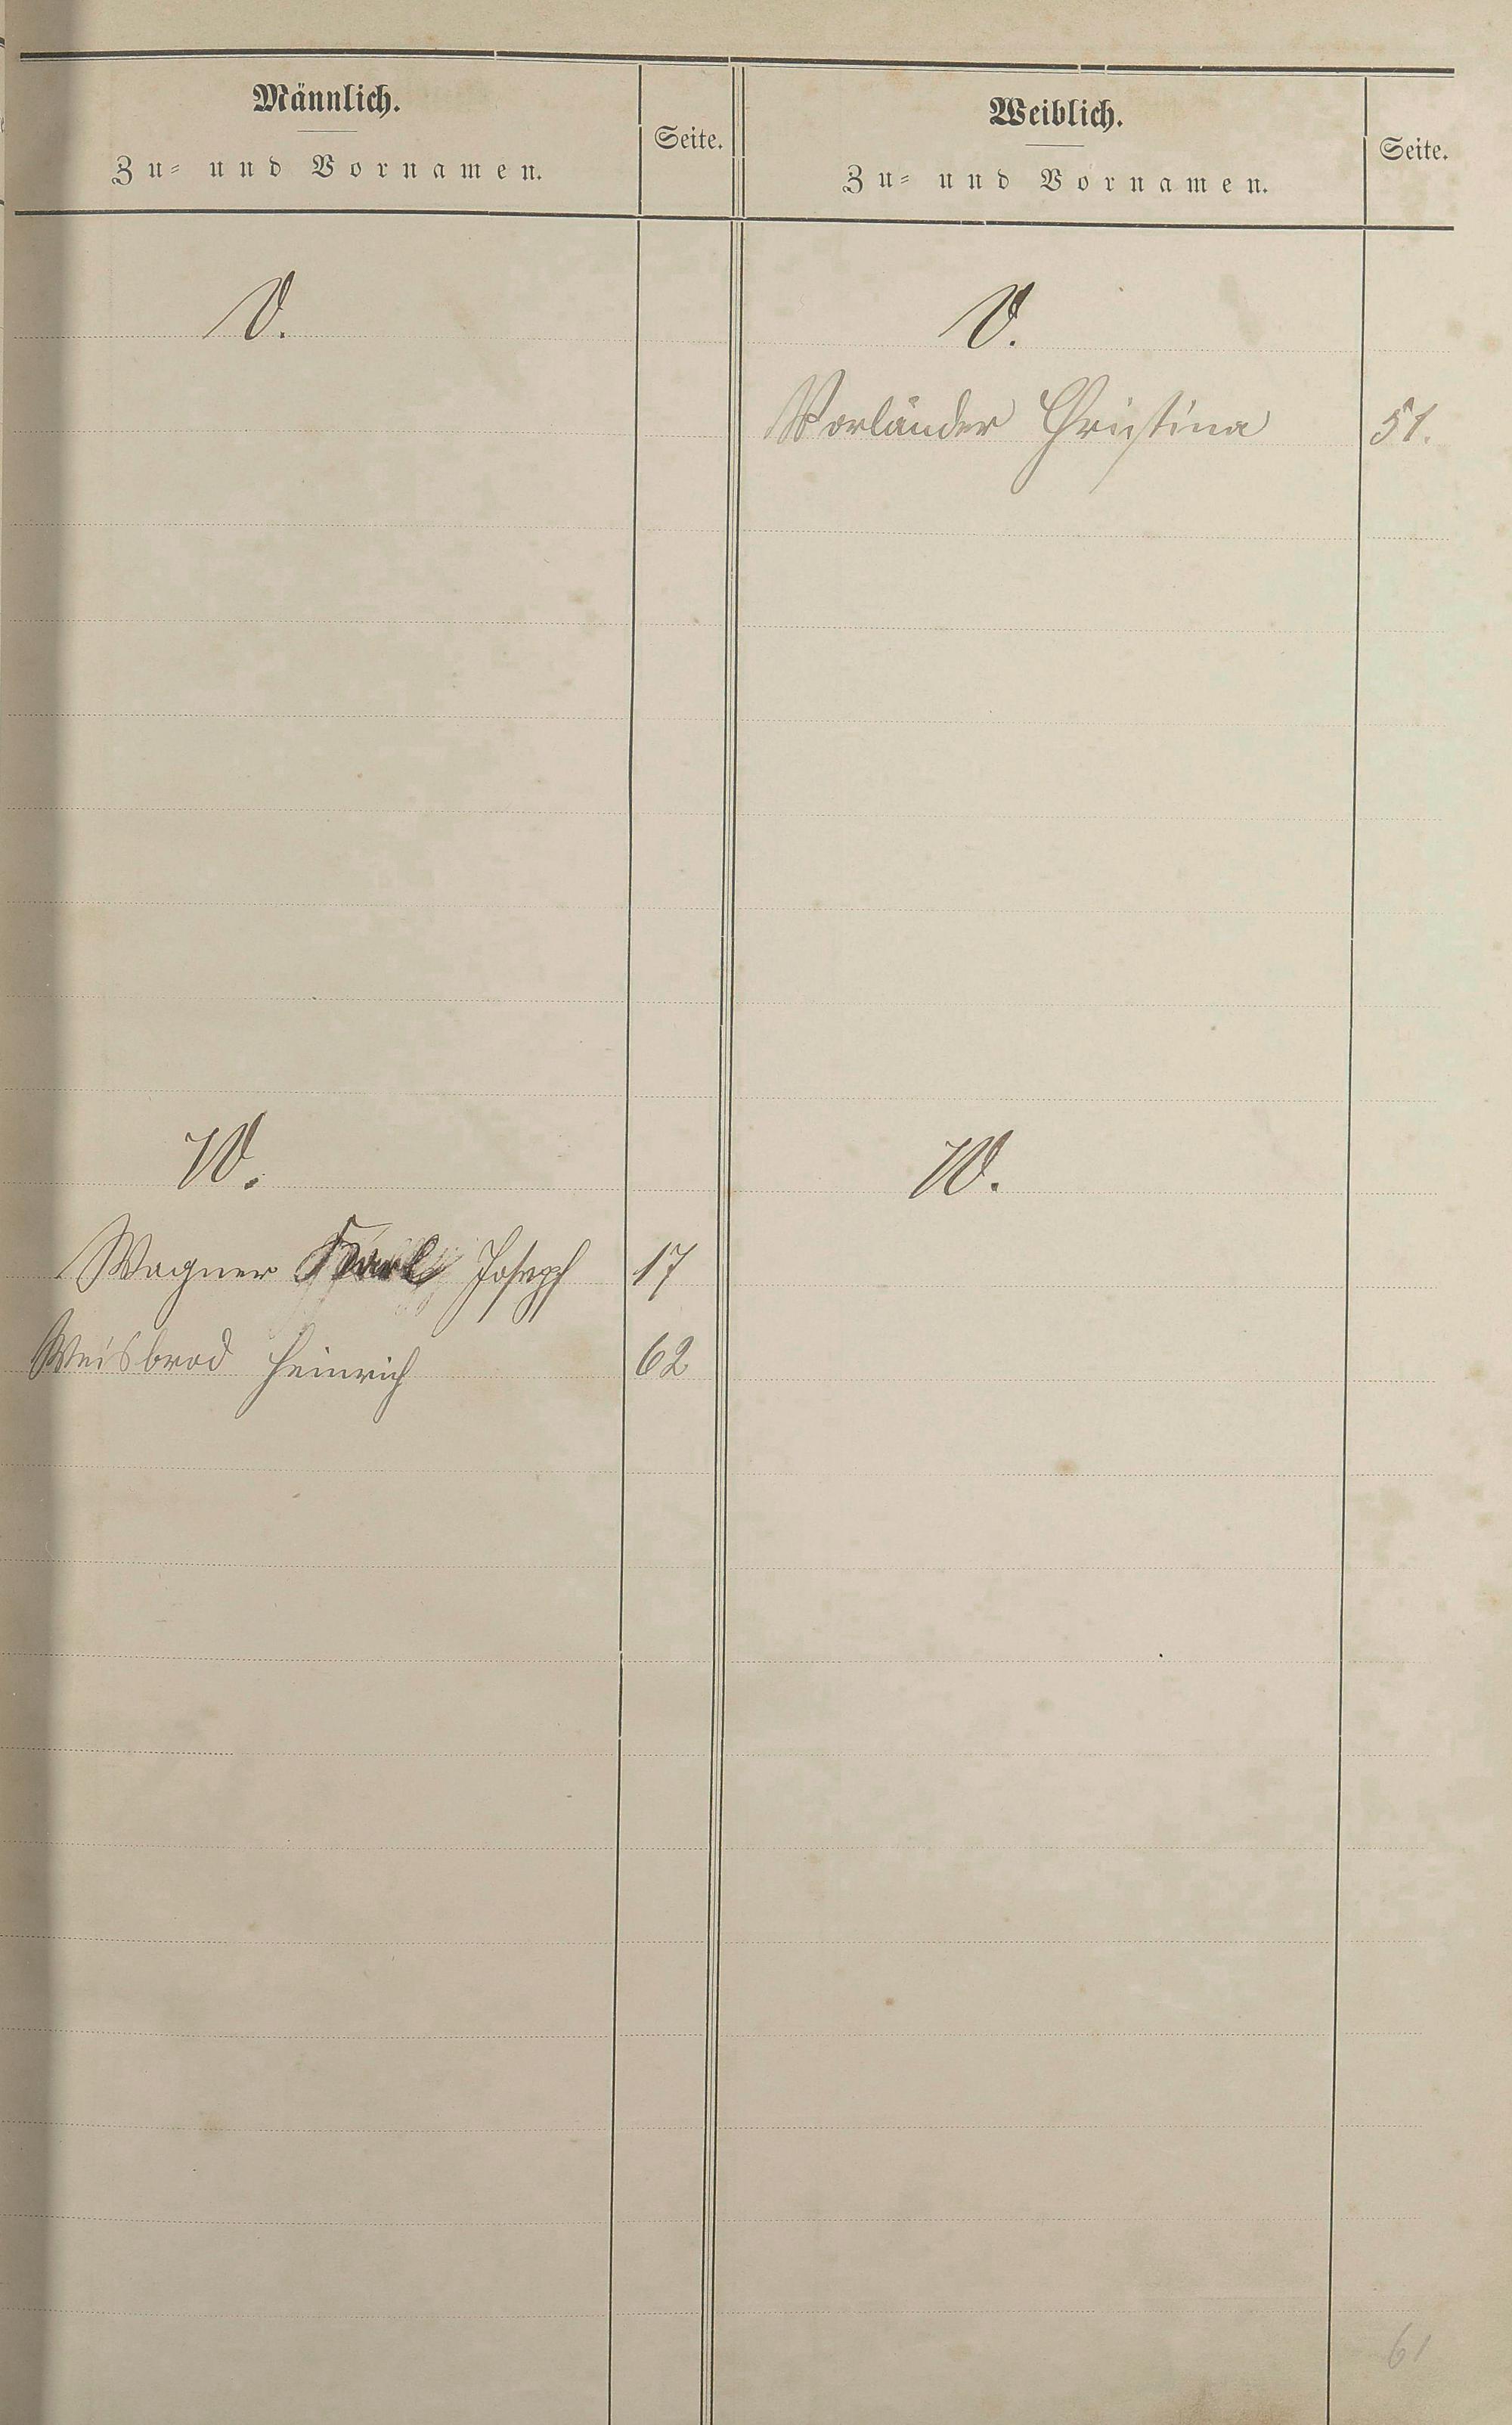 Männlich.
Zu- und Vornamen.
Seite.
Weiblich.
Zu- und Vornamen.
Seite.
V.
V.
Vorländer Christina 51.
W.
W.
Wagner Karl Joseph 17
Weisbrod Heinrich 62
61